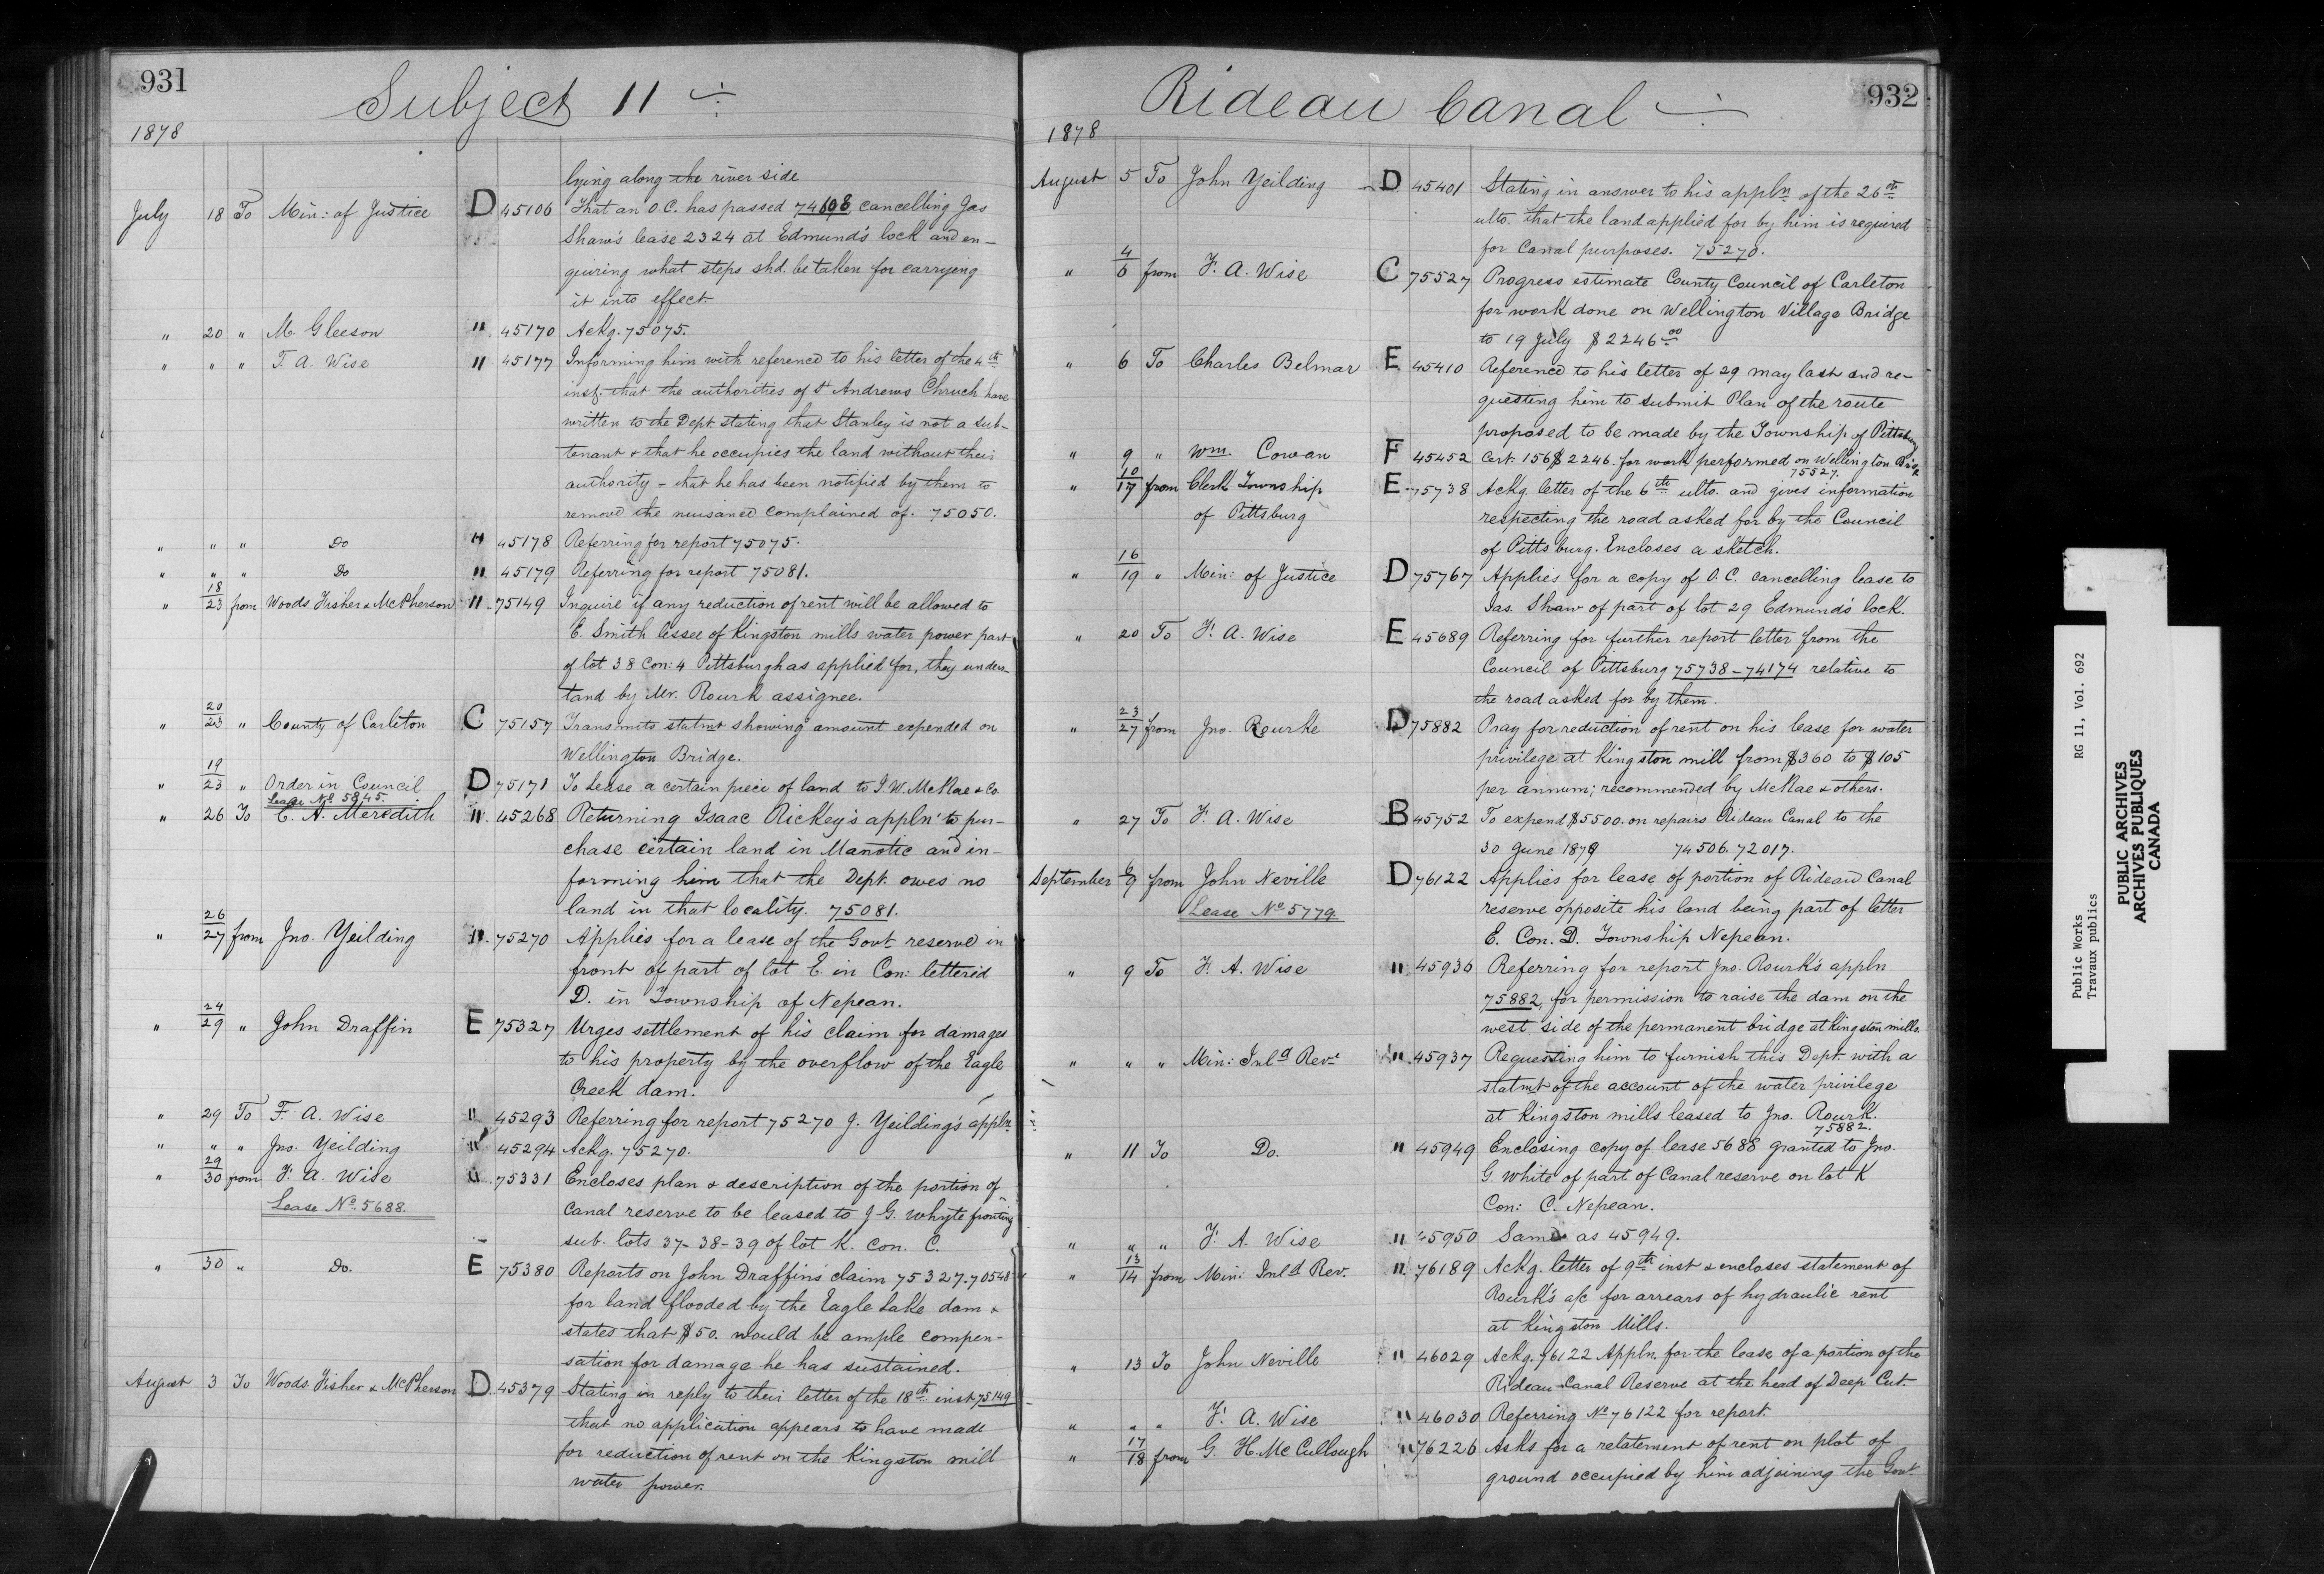 931
Subject 11
1878
lying along the river side
July 18 To Min: of Justice D 45106 That an O.C. has passed 74608 cancelling Jas
Shaw's lease 2324 at Edmund's lock and en-
quiring what steps shd. be taken for carrying
it into effect.
" 20 " M Gleeson " 45170 Ackg. 75075.
" " " F. A. Wise " 45177 Informing him with reference to his letter of the 4th
inst. that the authorities of St Andrews Chruch have
written to the Dept. stating that Stanley is not a sub-
tenant & that he occupies the land without their
authority - that he has been notified by them to
remove the nuisance complained of. 75050.
" " " Do " 45178 Referring for report 75075.
" " " Do " 45179 Referring for report 75081.
" 18/23 from Woods Fisher & McPherson " 75149 Inquire if any reduction of rent will be allowed to
E. Smith lessee of Kingston mills water power part
of lot 38 Con: 4 Pittsburgh as applied for, they unders-
tand by Mr. Rourk assignee.
" 20/23 " County of Carleton C 75157 Transmits statmt showing amount expended on
Wellington Bridge.
" 19/23 " Order in Council D 75171 To Lease a certain piece of land to J. W. McRae & Co.
Lease No 5845.
" 26 To E. A. Meredith " 45268 Returning Isaac Rickey's appln to pur-
chase certain land in Manotic and in-
forming him that the Dept. owes no
land in that locality. 75081.
" 26/27 from Jno. Yeilding " 75270 Applies for a lease of the Govt. reserve in
front of part of lot E. in Con: lettered
D. in Township of Nepean.
" 24/29 " John Draffin E 75327 Urges settlement of his claim for damages
to his property by the overflow of the Eagle
Creek dam.
" 29 To F. A. Wise " 45293 Referring for report 75270 J. Yeilding's appln
" " " Jno. Yeilding " 45294 Ackg. 75270.
" 29/30 from F. A. Wise " 75331 Encloses plan & description of the portion of
Lease No. 5688. Canal reserve to be leased to J G. Whyte fronting
sub. lots 37-38-39 of lot K. Con. C.
" 30 " Do. E 75380 Reports on John Draffins claim 75327-70548
for land flooded by the Eagle Lake dam &
states that $50. would be ample compen-
sation for damage he has sustained.
August 3 To Woods Fisher & McPherson D 45379 Stating in reply to their letter of the 18th inst 75149
that no application appears to have made
for reduction of rent on the Kingston mill
water power.
Rideau Canal
932
1878
August 5 To John Yeilding D 45401 Stating in answer to his appln of the 26th
ulto. that the land applied for by him is required
for Canal purposes. 75270.
" 4/6 from F. A. Wise C 75527 Progress estimate County Council of Carleton
for work done on Wellington Village Bridge
to 19 July $2246.00
" 6 To Charles Belmar E 45410 Reference to his letter of 29 may last and re-
questing him to submit Plan of the route
proposed to be made by the Township of Pittsburg
" 9 " Wm. Cowan F 45452 Cert. 156 $2246. for work performed on Wellington Bge
75527.
" 10/17 from Clerk Township E 75738 Ackg. letter of the 6th ulto. and gives information
of Pittsburg respecting the road asked for by the Council
of Pittsburg. Encloses a sketch.
" 16/19 " Min: of Justice D 75767 Applies for a copy of O.C. cancelling lease to
Jas. Shaw of part of lot 29 Edmund's lock.
" 20 To F. A. Wise E 45689 Referring for further report letter from the
Council of Pittsburg 75738-74174 relative to
the road asked for by them.
" 23/27 from Jno. Rourke D 75882 Pray for reduction of rent on his lease for water
privilege at Kingston mill from $360 to $105
per annum; recommended by McRae & others.
" 27 To F. A. Wise B 45752 To expend $5500. on repairs Rideau Canal to the
30 June 1879 74506. 72017.
September 6/9 from John Neville D 76122 Applies for lease of portion of Rideau Canal
Lease No 5779. reserve opposite his land being part of letter
E. Con. D. Township Nepean.
" 9 To F. A. Wise " 45936 Referring for report Jno. Rourk's appln
75882, for permission to raise the dam on the
west side of the permanent bridge at Kingston mills.
" " " Min: Inld Rev. " 45937 Requesting him to furnish this Dept. with a
statmt of the account of the water privilege
at Kingston mills leased to Jno. Rourk.
75882.
" 11 To Do. " 45949 Enclosing copy of lease 5688 granted to Jno.
G. White of part of Canal reserve on lot K
Con: C. Nepean.
" " " F. A. Wise " 45950 Same as 45949.
" 13/14 from Min: Inld Rev. " 76189 Ackg. letter of 9th inst & encloses statement of
Rourk's a/c for arrears of hydraulic rent
at Kingston Mills.
" 13 To John Neville " 46029 Ackg. 76122 Appln. for the lease of a portion of the
Rideau Canal Reserve at the head of Deep Cut.
" " " F. A. Wise " 46030 Referring No 76122 for report.
" 17/18 from G. H. McCullough " 76226 Asks for a relatement of rent on plot of
ground occupied by him adjoining the Govt.
Public Works
Travaux publics
RG 11, Vol. 692
PUBLIC ARCHIVES
ARCHIVES PUBLIQUES
CANADA